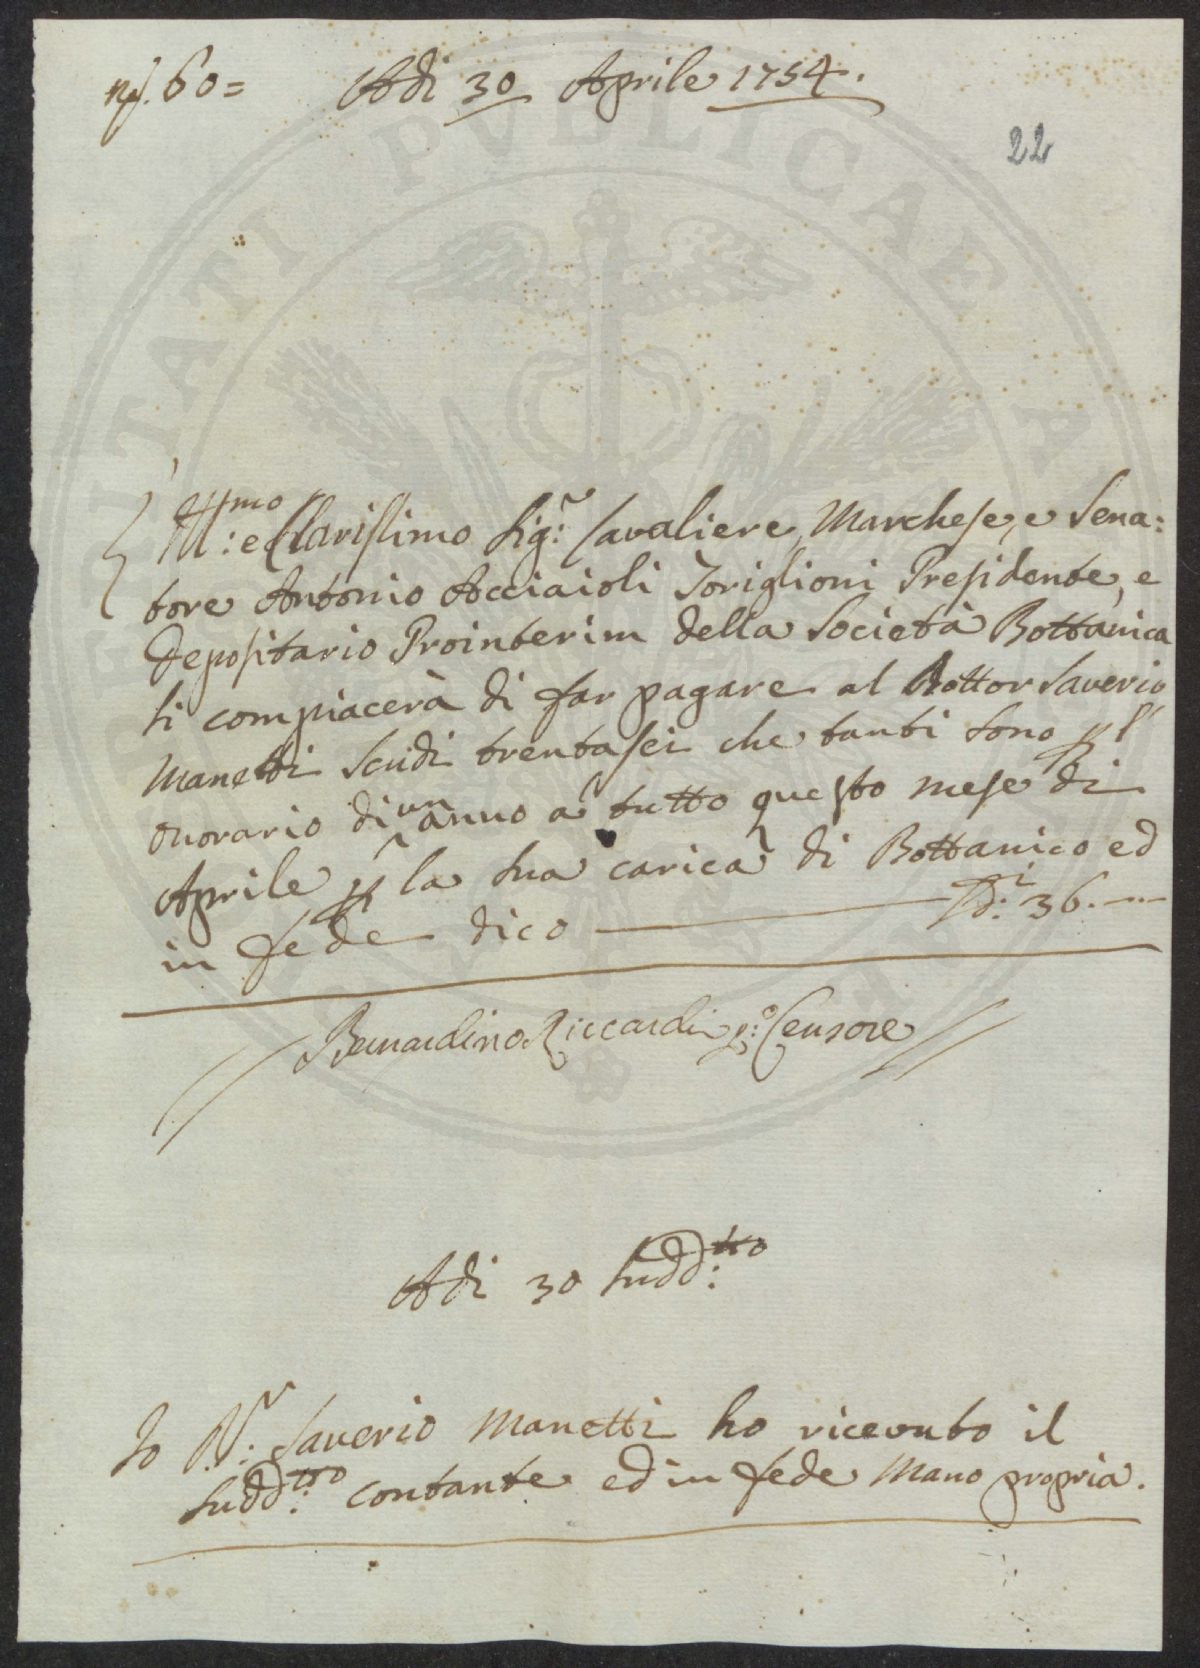 nº. 60=
Adi 30 Aprile 1754.
22
Ill:mo e Clarissimo Sig:r Cavaliere, Marchese, e Sena:
tore Antonio Acciaioli Toriglioni Presidente, e
Depositario Prointerim della Società Bottanica
si compiacerà di far pagare al Dottor Saverio
Manetti Scudi trentasei che tanti sono p l'
onorario di un anno a tutto questo mese di
Aprile p la sua carica di Bottanico ed
in fede dico Sdi: 36.
Bernardino Riccardi p:o Censore
Adi 30 sudd:tto
Io D:r Saverio Manetti ho ricevuto il
sudd:tto contante ed in fede Mano propria.
PVBLICAE